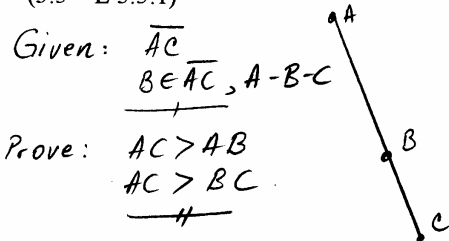 Given: AC
B∈AC, A-B-C
Prove: AC > AB
AC > BC
A
B
C